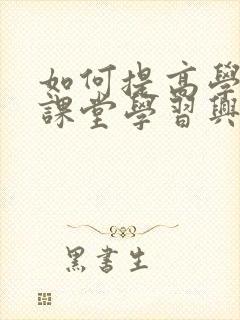 如何提高學
課堂學習興
黑書生